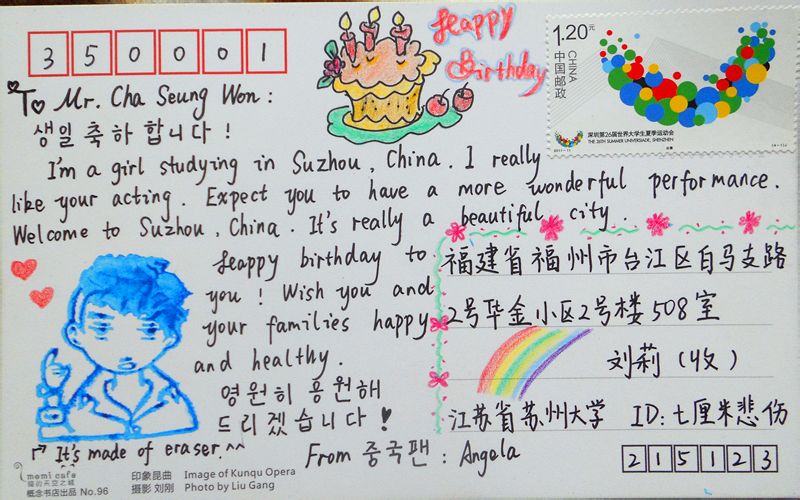 350001
Happy
Birthday
1.20元
中国邮政
CHINA
深圳第26届世界大学生夏季运动会
THE 26TH SUMMER UNIVERSIADE, SHENZHEN
2011-11
To Mr. Cha Seung Won :
생일 축하 합니다 !
I'm a girl studying in Suzhou, China. I really
like your acting. Expect you to have a more wonderful performance.
Welcome to Suzhou, China. It's really a beautiful city.
Happy birthday to
you ! Wish you and
your families happy
and healthy.
영원히 응원해
드리겠습니다 !
From 중국팬 : Angela
It's made of eraser. ^^
福建省福州市台江区白马支路
2号毕金小区2号楼508室
刘莉 (收)
江苏省苏州大学 ID: 七厘米悲伤
215123
momi cafe
猫的天空之城
概念书店出品 No.96
印象昆曲 Image of Kunqu Opera
摄影 刘刚 Photo by Liu Gang